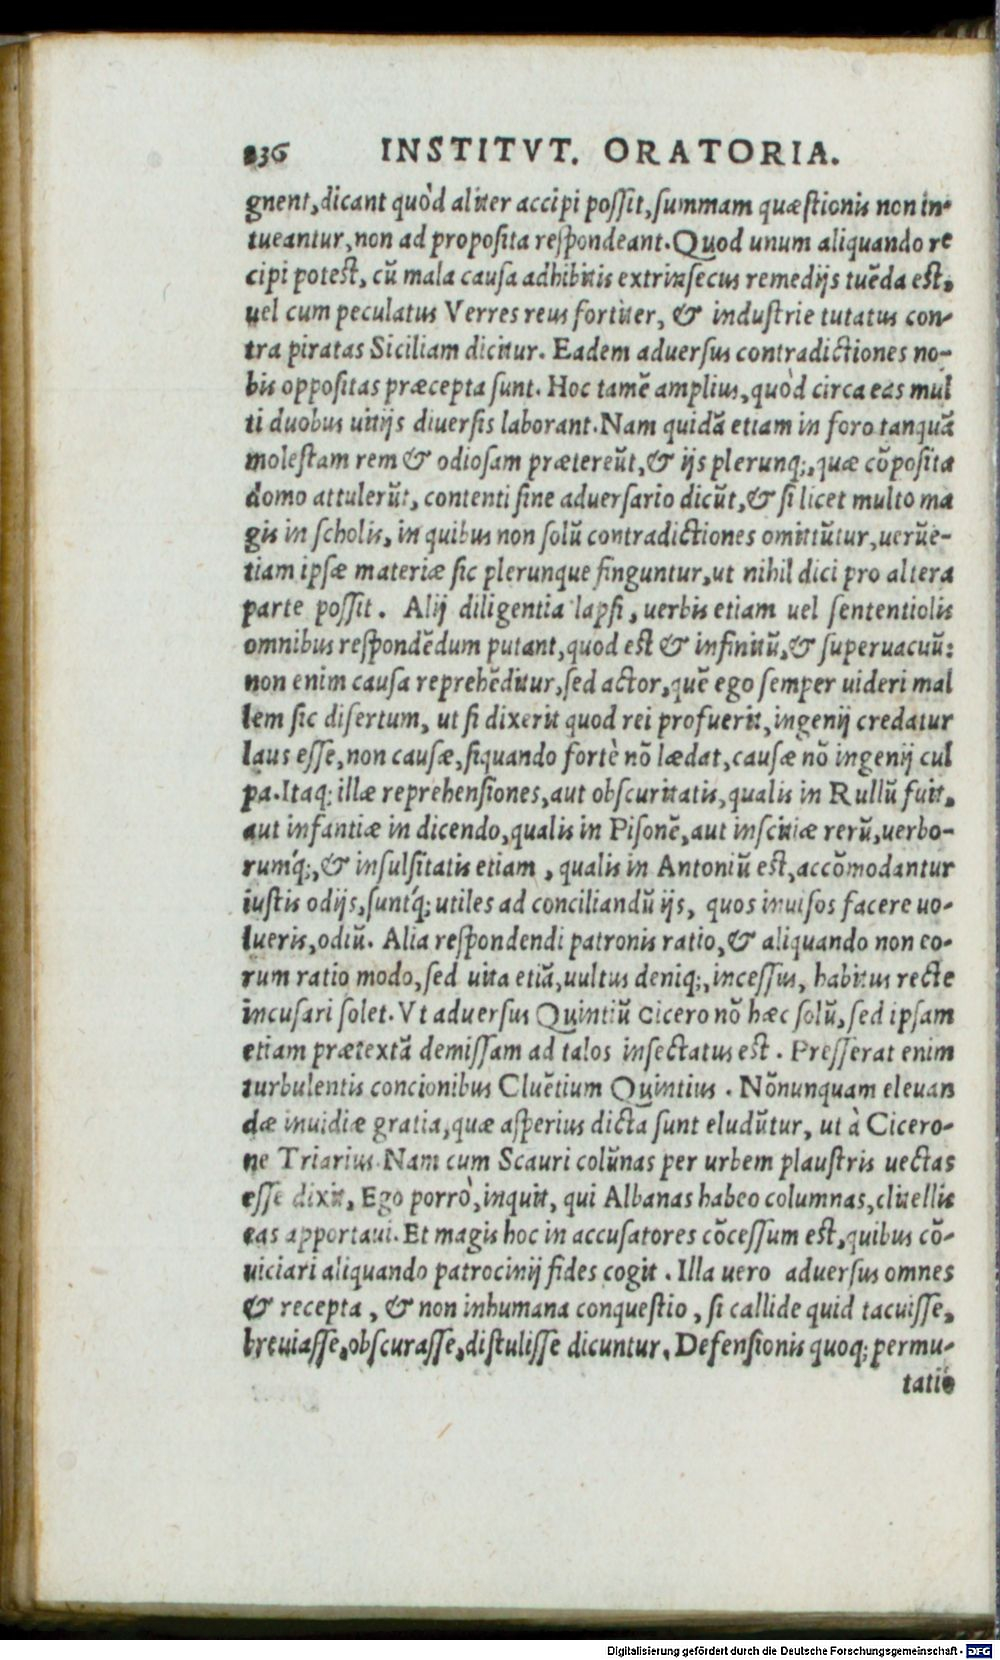 236 INSTITVT. ORATORIA.
gnent, dicant quòd aliter accipi possit, summam quæstionis non in-
tueantur, non ad proposita respondeant. Quod unum aliquando re
cipi potest, cũ mala causa adhibitis extrinsecus remedijs tuẽda est,
uel cum peculatus Verres reus fortiter, & industrie tutatus con-
tra piratas Siciliam dicitur. Eadem aduersus contradictiones no-
bis oppositas præcepta sunt. Hoc tamẽ amplius, quòd circa eas mul
ti duobus uitijs diuersis laborant. Nam quidã etiam in foro tanquã
molestam rem & odiosam prætereũt, & ijs plerunq;, quæ cõposita
domo attulerũt, contenti sine aduersario dicũt, & si licet multo ma
gis in scholis, in quibus non solũ contradictiones omittũtur, uerũe-
tiam ipsæ materiæ sic plerunque finguntur, ut nihil dici pro altera
parte possit. Alij diligentia lapsi, uerbis etiam uel sententiolis
omnibus respondẽdum putant, quod est & infinitũ, & superuacuũ:
non enim causa reprehẽditur, sed actor, quẽ ego semper uideri mal
lem sic disertum, ut si dixerit quod rei profuerit, ingenij credatur
laus esse, non causæ, siquando fortè nõ lædat, causæ nõ ingenij cul
pa. Itaq; illæ reprehensiones, aut obscuritatis, qualis in Rullũ fuit,
aut infantiæ in dicendo, qualis in Pisonẽ, aut inscitiæ rerũ, uerbo-
rumq́;, & insulsitatis etiam, qualis in Antoniũ est, accõmodantur
iustis odijs, suntq́; utiles ad conciliandũ ijs, quos inuisos facere uo-
lueris, odiũ. Alia respondendi patronis ratio, & aliquando non eo-
rum ratio modo, sed uita etiã, uultus deniq;, incessus, habitus recte
incusari solet. Vt aduersus Quintiũ Cicero nõ hæc solũ, sed ipsam
etiam prætextã demissam ad talos insectatus est. Presserat enim
turbulentis concionibus Cluẽtium Quintius. Nõnunquam eleuan
dæ inuidiæ gratia, quæ asperius dicta sunt eludũtur, ut à Cicero-
ne Triarius. Nam cum Scauri colũnas per urbem plaustris uectas
esse dixit, Ego porrò, inquit, qui Albanas habeo columnas, clitellis
eas apportaui. Et magis hoc in accusatores cõcessum est, quibus cõ-
uiciari aliquando patrocinij fides cogit. Illa uero aduersus omnes
& recepta, & non inhumana conquestio, si callide quid tacuisse,
breuiasse, obscurasse, distulisse dicuntur. Defensionis quoq; permu-
tatio
Digitalisierung gefördert durch die Deutsche Forschungsgemeinschaft - DFG